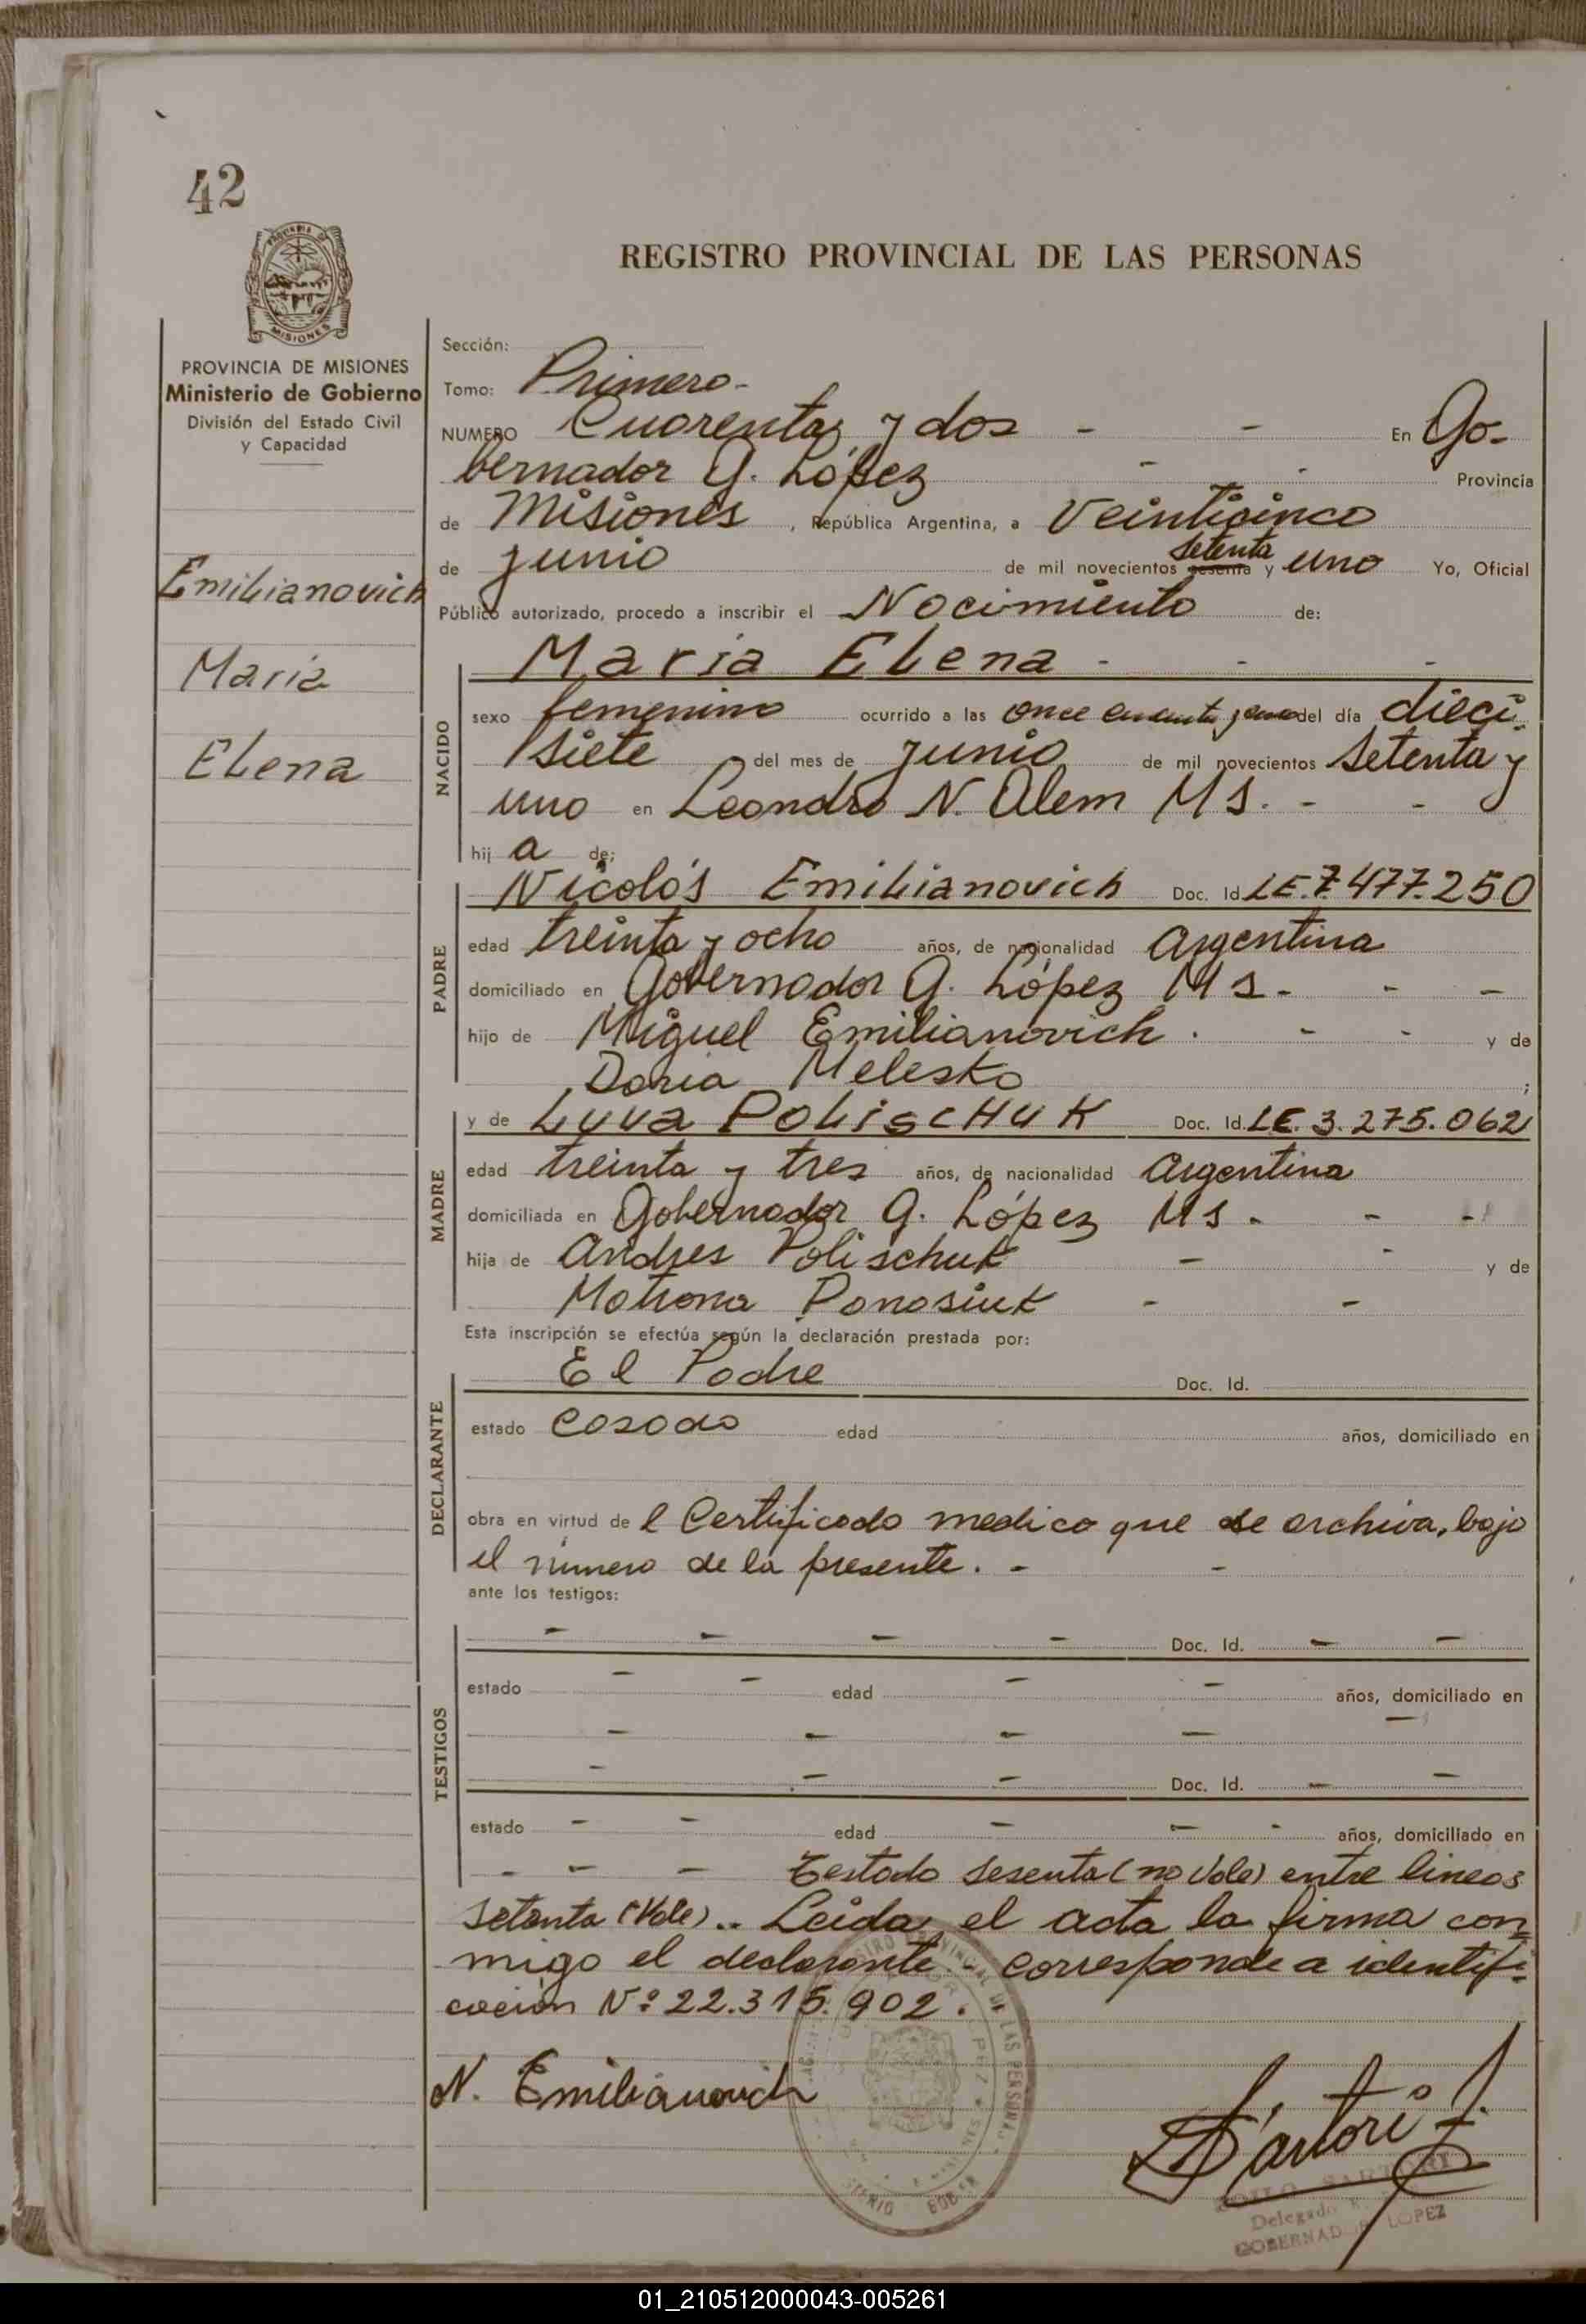 42
PROVINCIA DE MISIONES
Ministerio de Gobierno
División del Estado Civil
y Capacidad
Emilianovich
Maria
Elena
REGISTRO PROVINCIAL DE LAS PERSONAS
Sección:
Tomo: Primero-
NUMERO Cuarenta y dos - - En Go-
bernador G. López - - Provincia
de Misiones, República Argentina, a Veinticinco
de junio de mil novecientos sesenta setenta y uno Yo, Oficial
Público autorizado, procedo a inscribir el Nacimiento de:
NACIDO
Maria Elena - - -
sexo femenino ocurrido a las once cuarenta del día dieci-
siete del mes de junio de mil novecientos setenta y
uno en Leandro N. Alem MS. - -
hij a de:
PADRE
Nicolás Emilianovich Doc. Id. LE. 7.477.250
edad treinta y ocho años, de nacionalidad Argentina
domiciliado en Gobernador G. López MS - - -
hijo de Miguel Emilianovich . - - y de
Daria Melesko ;
MADRE
y de Luva Polischuk Doc. Id. LE. 3.275.062
edad treinta y tres años, de nacionalidad Argentina
domiciliada en Gobernador G. López MS - - -
hija de Andres Polischuk - - y de
Motrona Panasiuk - -
Esta inscripción se efectúa según la declaración prestada por:
DECLARANTE
El Padre Doc. Id.
estado casado edad años, domiciliado en
obra en virtud de l Certificado medico que se archiva, bajo
el número de la presente. - -
ante los testigos:
TESTIGOS
- - - - Doc. Id. - -
estado - - edad - - años, domiciliado en
- - - - -
- - - Doc. Id. - -
estado - - edad - - - años, domiciliado en
- - - Testado sesenta (no Vale) entre lineas
setenta (Vale) .. Leida el acta la firma con=
migo el declarante.- corresponde a identifi-
cación Nº 22.315.902.
N. Emilianovich
Sartori
SARTORI
Delegado
GOBERNADOR LOPEZ
01_210512000043-005261